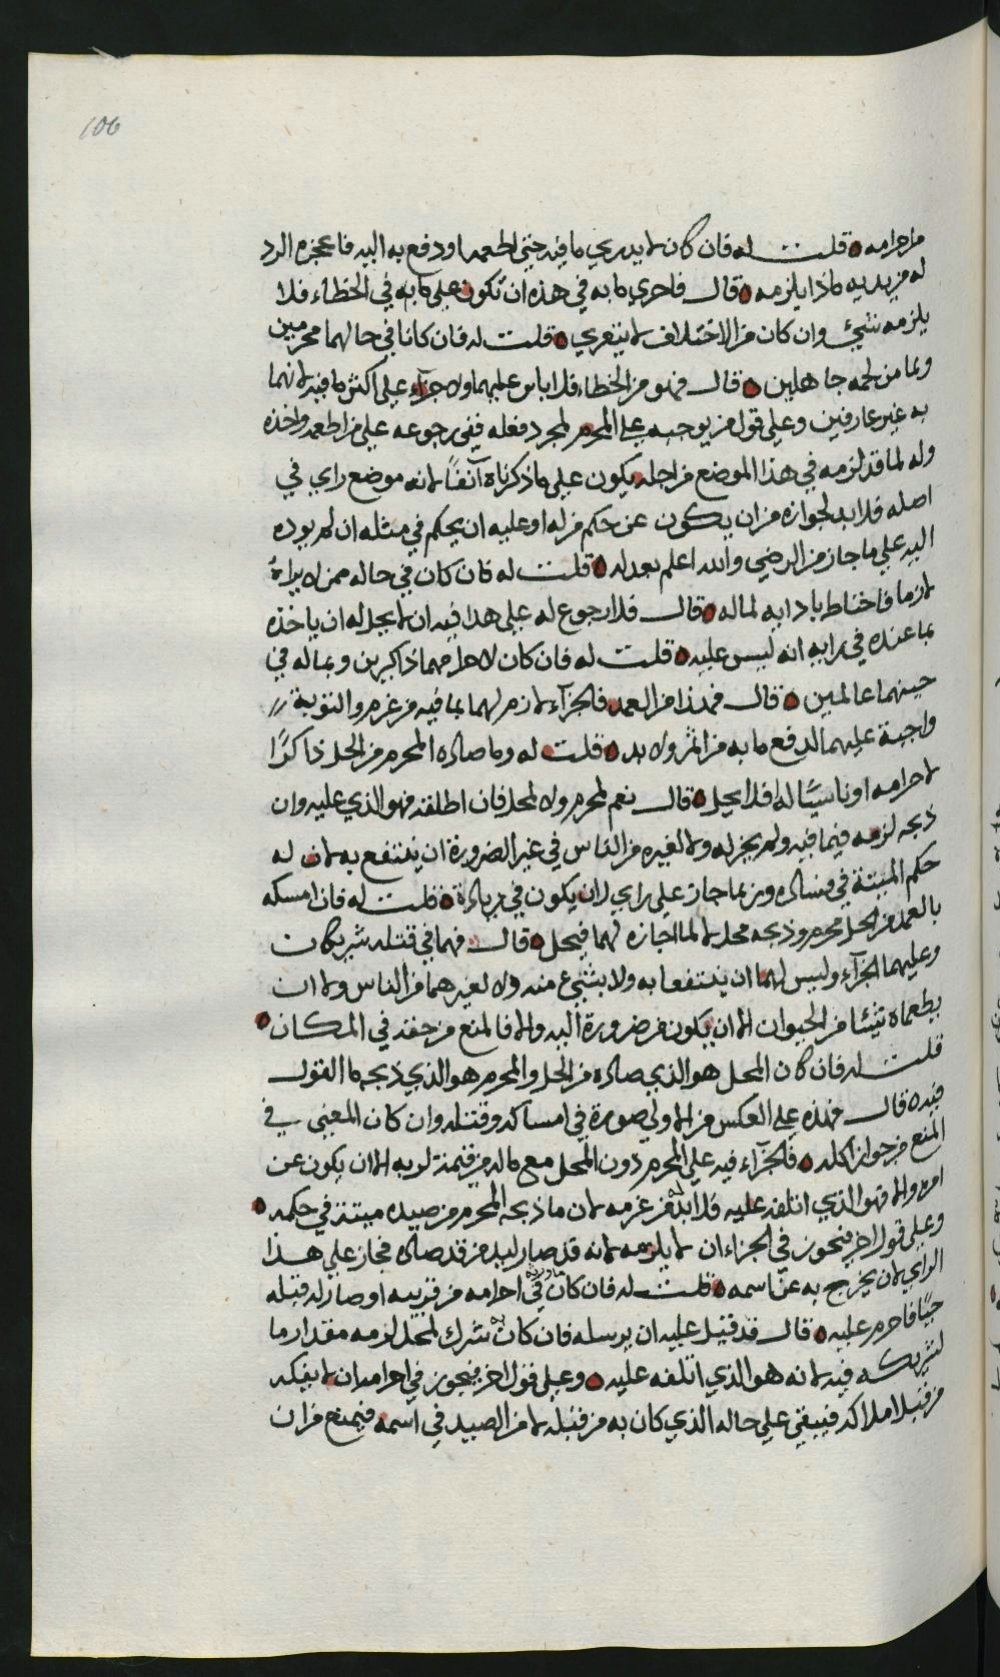 106
من احرامه قلت له فان كان لا يدري ما فيه حتى اطعمه اودفع به اليه فاعجزه الرد
له من يديه ماذا يلزمه قال فاحري ما به في هذه ان تكون على ما به في الخطاء فلا
يلزمه شيء وان كان من الاختلاف لا يتعري قلت له فان كانا في حالهما محرمين
وبما من لحمه جاهلين قال فهو من الخطاء فلا باس عليهما ولا جزاء على اكثر ما فيه لانهما
به غير عارفين وعلى قول من يوجبه على المحرم لمجرد فعله ففي رجوعه على من اطعمه واخذه
وله لما قد لزمه في هذا الموضع من اجله يكون على ما ذكرناه آنفًا لانه موضع راي في
اصله فلا بد لجوازه من ان يكون عن حكم من له او عليه ان يحكم في مثله ان لم يوده
اليه على ما جاز من الرضي والله اعلم بعدله قلت له فان كان في حاله ممن لا يراه
لازما فاحتاط بادايه لماله قال فلا رجوع له على هذا فيه ان لا يجد له ان ياخذه
بما عنده في رايه انه ليس عليه قلت له فان كان لاحرامهما ذاكرين وبماله في
حينهما عالمين قال فهذا من العمد فالجزآء لازم لهما بما فيه من غرم والتوبة
واجبة عليهما لدفع ما به من اثم ولا بد قلت له وما صاده المحرم من الحل ذاكرًا
لاحرامه او ناسيًا له افلا يحل قال نعم لمحرم ولا لمحل فان اطلقه فهو الذي عليه وان
ذبحه لزمه فيما فيه ولم يجز له ولا لغيره من الناس في غير الضرورة ان ينتفع به لان له
حكم الميتة في فساده وربما جاز على راي لان يكون في زيادة قلت له فان امسكه
بالعمد من الحل محرم وذبحه محل لا لما اجازه لهما فيحل قال فهما في قتله شريكان
وعليهما الجزآء وليس لهما ان ينتفعا به ولا بشيء منه ولا لغيرهما من الناس ولا ان
يطعماه شيئا من الحيوان الا ان يكون من ضرورة اليه والا فالمنع من حقه في المكان
قلت له فان كان المحل هو الذي صاده من الحل والمحرم هو الذي ذبحه ما القول
فيه قال فهذه على العكس من الاولي صورة في امساكه وقتله وان كان المعني في
المنع من جواز اكله فالجزآء فيه على المحرم دون المحل مع ماله من قيمة لربه الا ان يكون عن
امره والا فهو الذي اتلفه عليه فلا بد له من غرمه لان ما ذبحه المحرم من صيده ميتة في حكمه
وعلى قول اخر فيجوز في الجزاء ان لا يلزمه لانه قد صار ليد من قد صاده فجاز على هذا
الراي لان يخرج به عن اسمه قلت له فان كان في احرامه من قريبه او صار له قبله
حيًا فاحرم عليه قال قد قيل عليه ان يرسله فان كان شرك لمحل لزمه مقدار ما
لشريكه فيه لانه هو الذي اتلفه عليه وعلى قول اخر فيجوز في احرامه ان لا يفكه
من قبل املاكه فيبقي على حاله الذي كان به من قبله لا من الصيد في اسمه فيمنع من ان